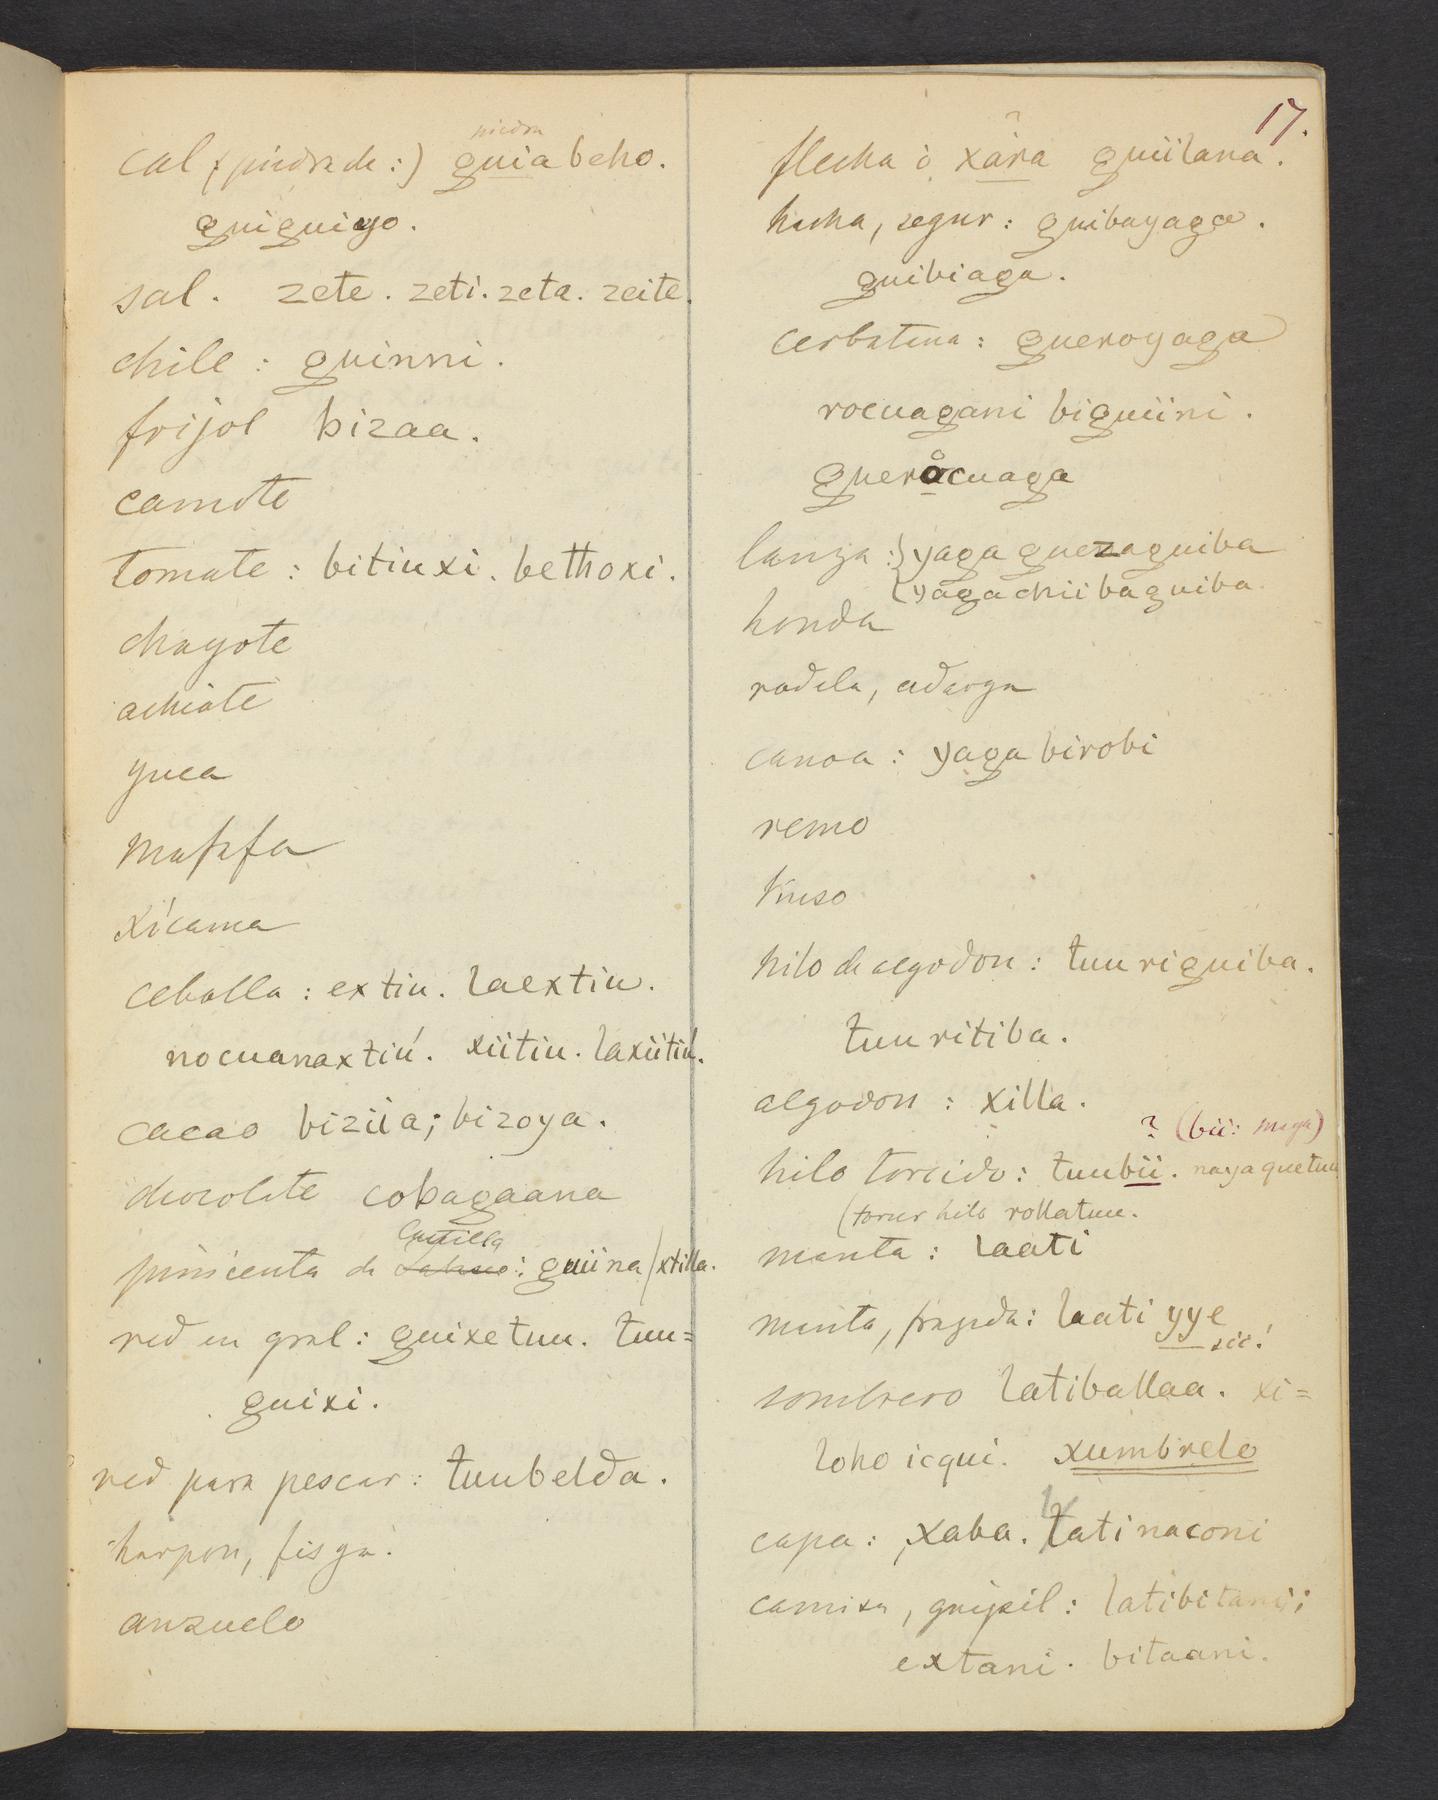 17.
piedra
cal (piedra de:) guiabeho.
guiguiyo.
sal. zete. zeti. zeta. zeite.
chile: guinni.
frijol bizaa.
camote
tomate: bitiuxi. bethoxi.
chayote
achiote
yuca
xícama
cebolla: extiu. laextiu.
nocuanaxtiú. xiitiu. laxiitiú.
cacao biziia; bizoya.
chocolate cobagaana
Castilla
pimienta de Tabasco: guiina/xtilla.
red en gral: guixetuu. tuu=
guixi.
red para pescar: tuubelda.
harpon, fisga.
anzuelo
?
flecha ò xàra guiilana.
hacha, segur: guibayaga.
guibiaga.
cerbatana: gueroyaga
rocuagani biguiini.
guerocuaga
lanza: yaga guezaguiba
yagachiibaguiba.
honda
rodela, adarga
canoa: yaga birobi
remo
huso
hilo de algodon: tuuriguiba.
tuuritiba.
algodon: xilla.
? (bii: maya)
hilo torcido: tuubii. nayaquetuu
(torcer hilo rollatuu.
manta: laati
manta, frazada: laati yye
sic!
sombrero latiballaa. xi=
loho icqui. xumbrelo
l
capa: xaba. tatinaconi
camisa, guipil: latibitani;
extani. bitaani.